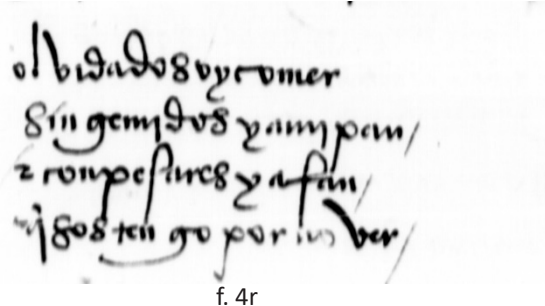 olvidados oy comer
sin gemjdos y amj pan /
z con pesares y afan /
sostengo por no ver /
f. 4r